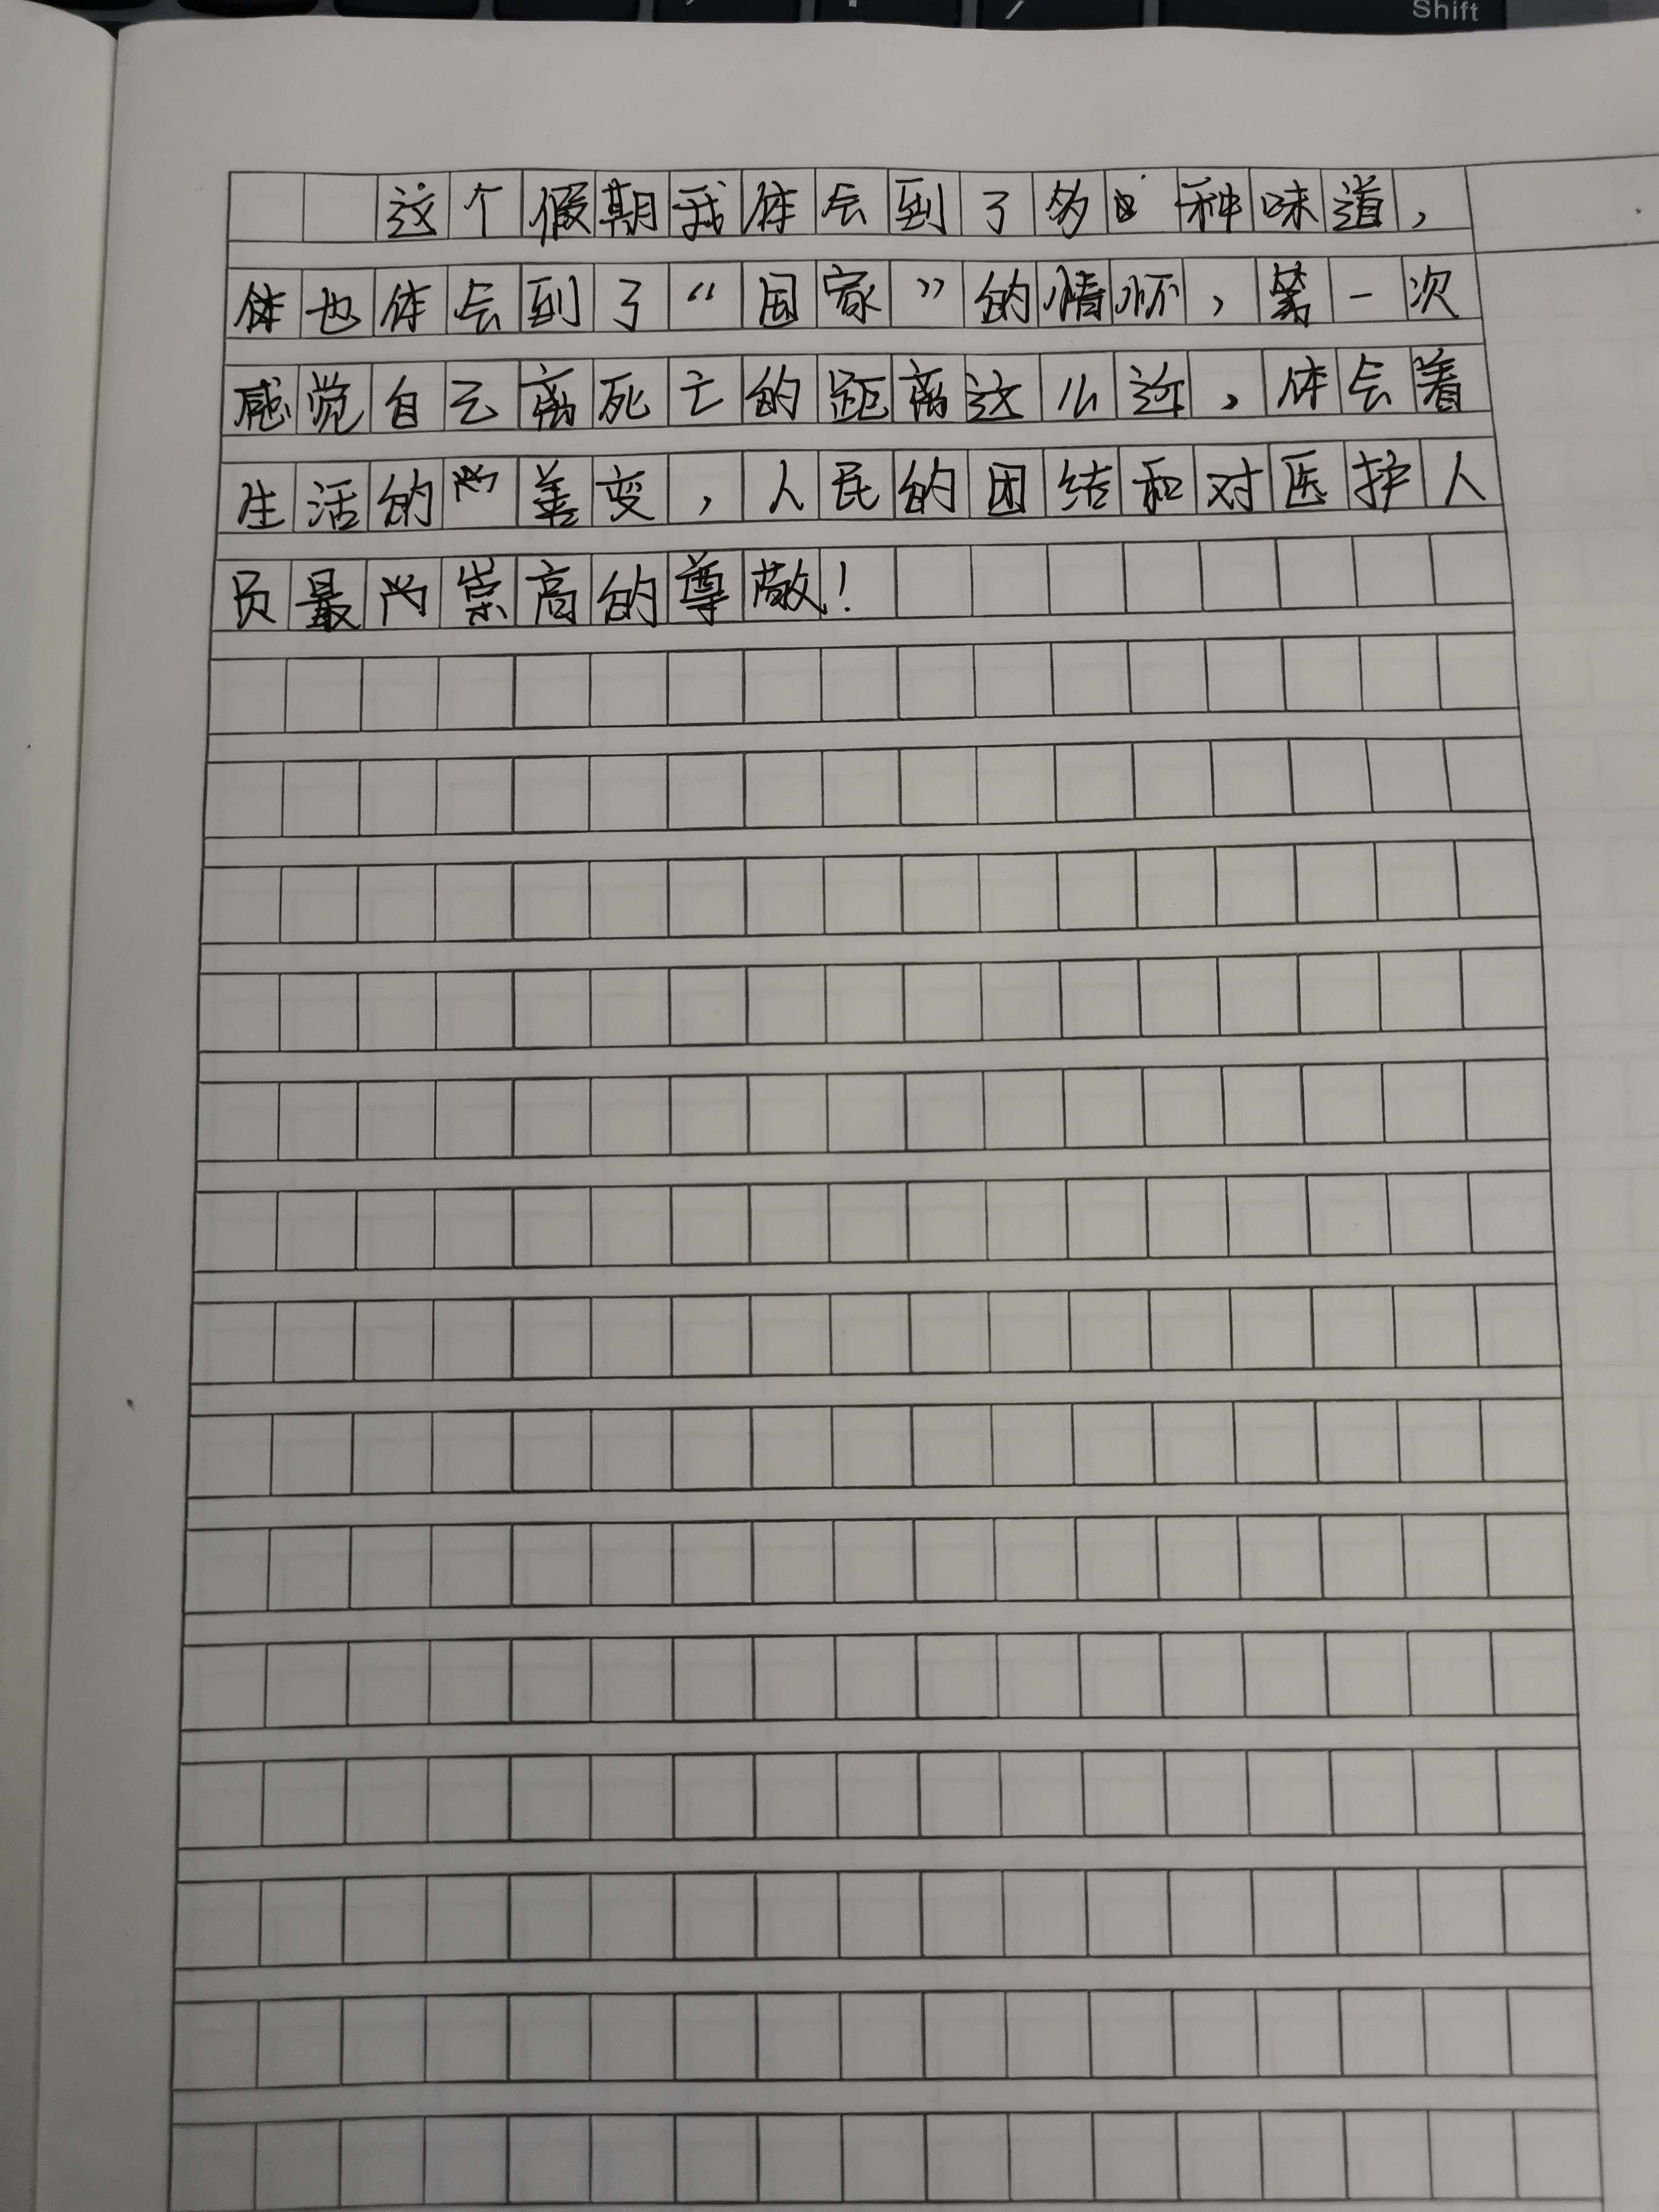 Shift
这个假期我体会到了多种味道,
体也体会到了“国家”的情怀,第一次
感觉自己离死亡的距离这么近,体会着
生活的善变,人民的团结和对医护人
员最崇高的尊敬!